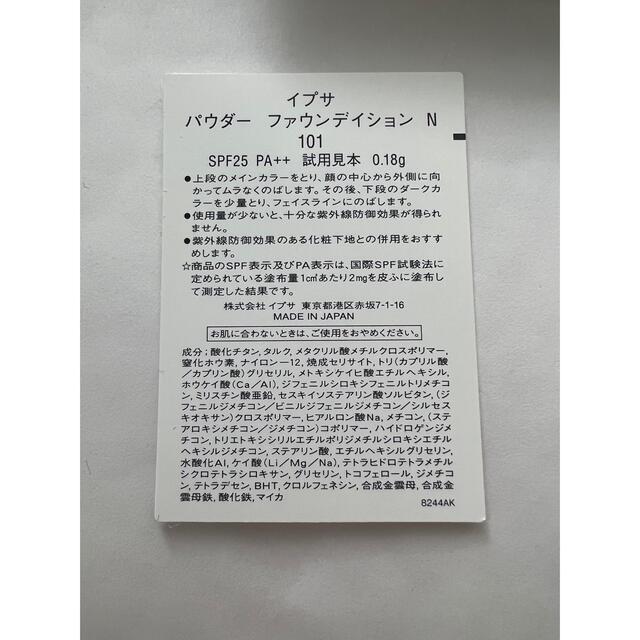 イプサ
パウダー ファウンデイション N
101
SPF25 PA++ 試用見本 0.18g
●上段のメインカラーをとり、顔の中心から外側に向
かってムラなくのばします。その後、下段のダークカ
ラーを少量とり、フェイスラインにのばします。
●使用量が少ないと、十分な紫外線防御効果が得られ
ません。
●紫外線防御効果のある化粧下地との併用をおすす
めします。
☆商品のSPF表示及びPA表示は、国際SPF試験法に
定められている塗布量1c㎡あたり2mgを皮ふに塗布し
て測定した結果です。
株式会社イプサ 東京都港区赤坂7-1-16
MADE IN JAPAN
お肌に合わないときは、ご使用をおやめください。
成分；酸化チタン, タルク, メタクリル酸メチルクロスポリマー,
窒化ホウ素, ナイロン-12, 焼成セリサイト, トリ(カプリル酸
/カプリン酸)グリセリル, メトキシケイヒ酸エチルヘキシル,
ホウケイ酸(Ca/Al), ジフェニルシロキシフェニルトリメチコ
ン, ミリスチン酸亜鉛, セスキイソステアリン酸ソルビタン, (ジ
フェニルジメチコン/ビニルジフェニルジメチコン/シルセス
キオキサン)クロスポリマー, ヒアルロン酸Na, メチコン, (ステ
アロキシメチコン/ジメチコン)コポリマー, ハイドロゲンジメ
チコン, トリエトキシシリルエチルポリジメチルシロキシエチル
ヘキシルジメチコン, ステアリン酸, エチルヘキシルグリセリン,
水酸化Al, ケイ酸(Li/Mg/Na), テトラヒドロテトラメチル
シクロテトラシロキサン, グリセリン, トコフェロール, ジメチコ
ン, テトラデセン, BHT, クロルフェネシン, 合成金雲母, 合成金
雲母鉄, 酸化鉄, マイカ
8244AK